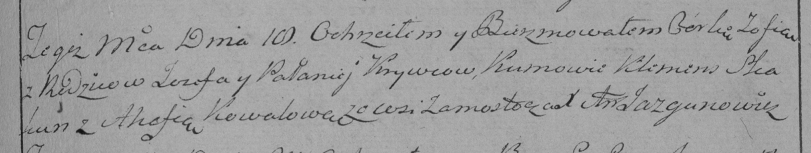 Tegoż Mca Dnia 18. Ochrzciłem y Bierzmowałem Córkę Zofią
z Rodziców Jozefa y Pałaniej Krywcow, Kumowie Klemens
kun z Ahafią Kowalową ze wsi Zamostocza X An Jazgunowicz